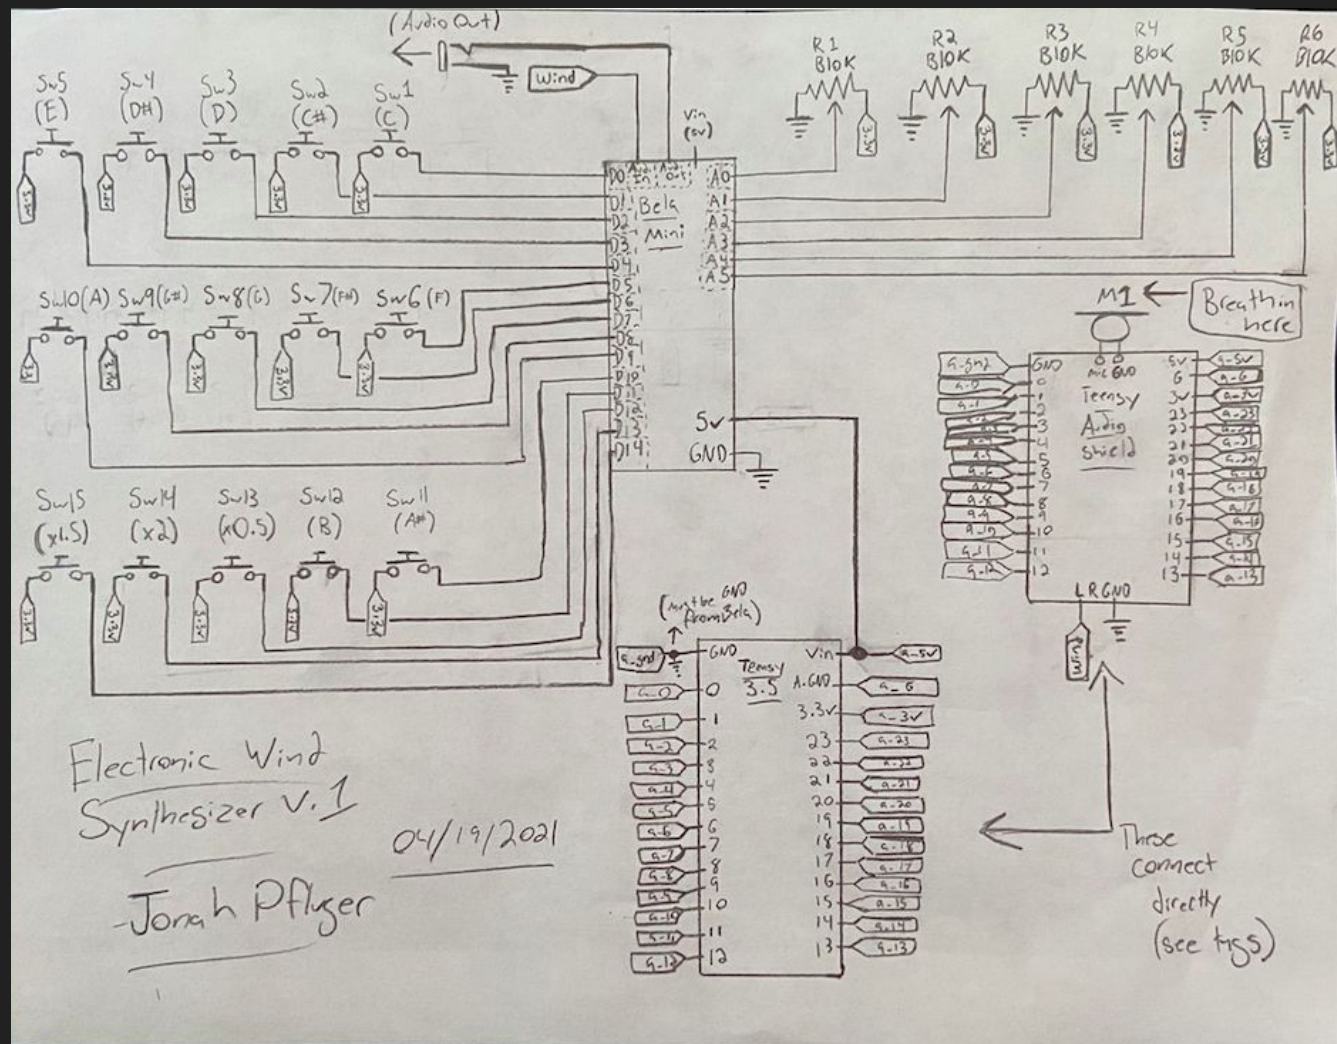 (Audio Out)
Wind
Sw5
(E)
Sw4
(D#)
Sw3
(D)
Sw2
(C#)
Sw1
(C)
3.3v
3.3v
3.3v
3.3v
3.3v
R1
B10K
R2
B10K
R3
B10K
R4
B10K
R5
B10K
R6
B10K
3.3v
3.3v
3.3v
3.3v
3.3v
3.3v
Vin
(5v)
Bela
Mini
D0
D1
D2
D3
D4
D5
D6
D7
D8
D9
D10
D11
D12
D13
D14
A0
A1
A2
A3
A4
A5
5v
GND
Sw10(A)
Sw9(G#)
Sw8(G)
Sw7(F#)
Sw6(F)
3.3v
3.3v
3.3v
3.3v
Sw15
(x1.5)
Sw14
(x2)
Sw13
(x0.5)
Sw12
(B)
Sw11
(A#)
3.3v
3.3v
3.3v
3.3v
3.3v
M1
Breath in
here
Teensy
Audio
Shield
mic GND
GND
0
1
2
3
4
5
6
7
8
9
10
11
12
5v
G
3v
23
22
21
20
19
18
17
16
15
14
13
a-gnd
a-0
a-1
a-5
a-6
a-7
a-8
a-9
a-10
a-11
a-12
a-5v
a-G
a-3v
a-23
a-21
a-20
a-19
a-18
a-17
a-15
a-14
a-13
L R GND
(must be GND
from Bela)
Teensy
3.5
GND
0
1
2
3
4
5
6
7
8
9
10
11
12
Vin
A.GND
3.3v
23
22
21
20
19
18
17
16
15
14
13
a-gnd
a-0
a-1
a-2
a-3
a-4
a-5
a-6
a-7
a-8
a-9
a-10
a-11
a-12
a-5v
a-G
a-3v
a-23
a-22
a-21
a-20
a-19
a-18
a-17
a-16
a-15
a-14
a-13
These
connect
directly
(see tags)
Electronic Wind
Synthesizer v.1
04/19/2021
-Jonah Pfluger